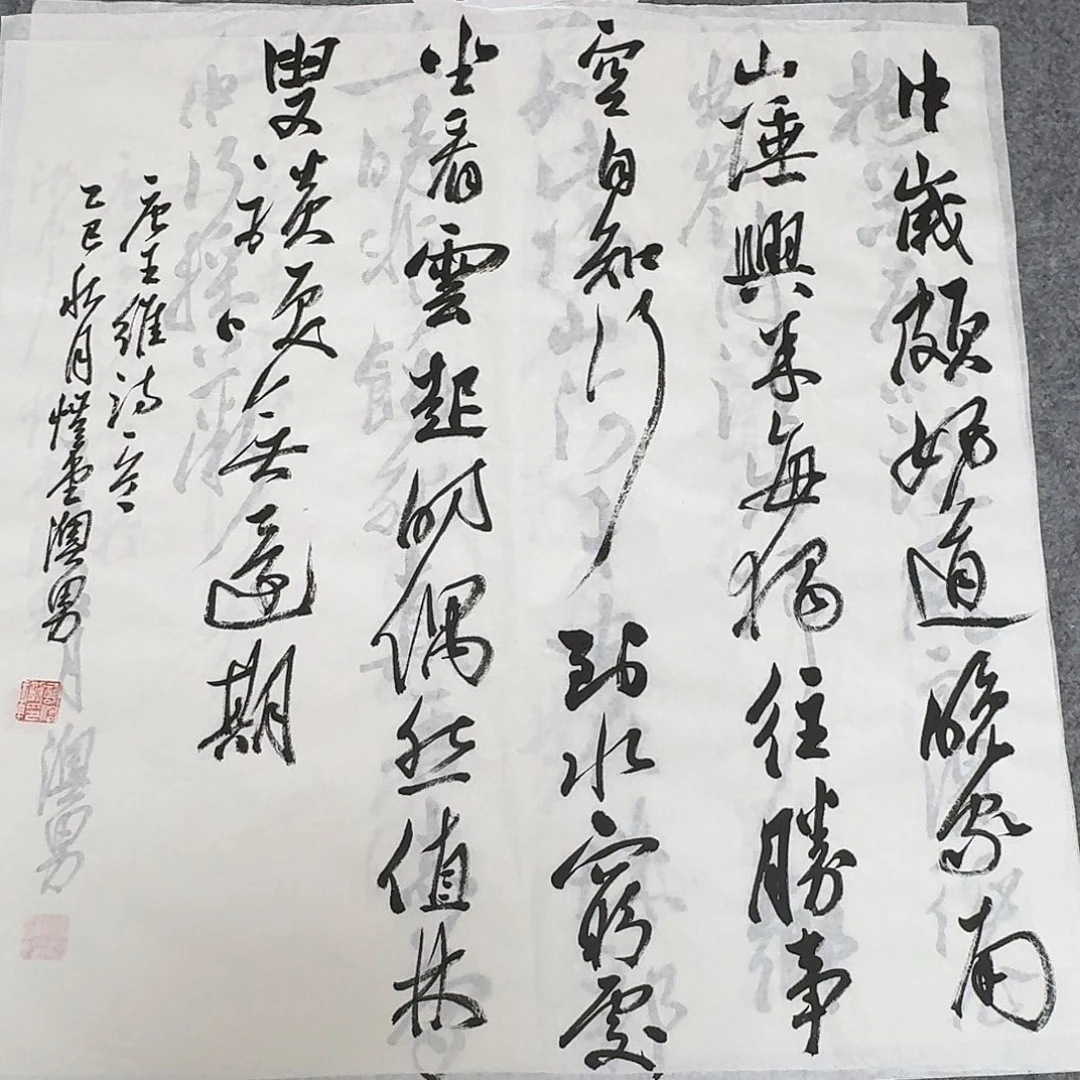 中歲頗好道晚家南
山陲興來每獨往勝事
空自知行到水窮處
坐看雲起時偶然值林
叟談咲無還期
唐王維詩一首
乙巳秋月堂澳男